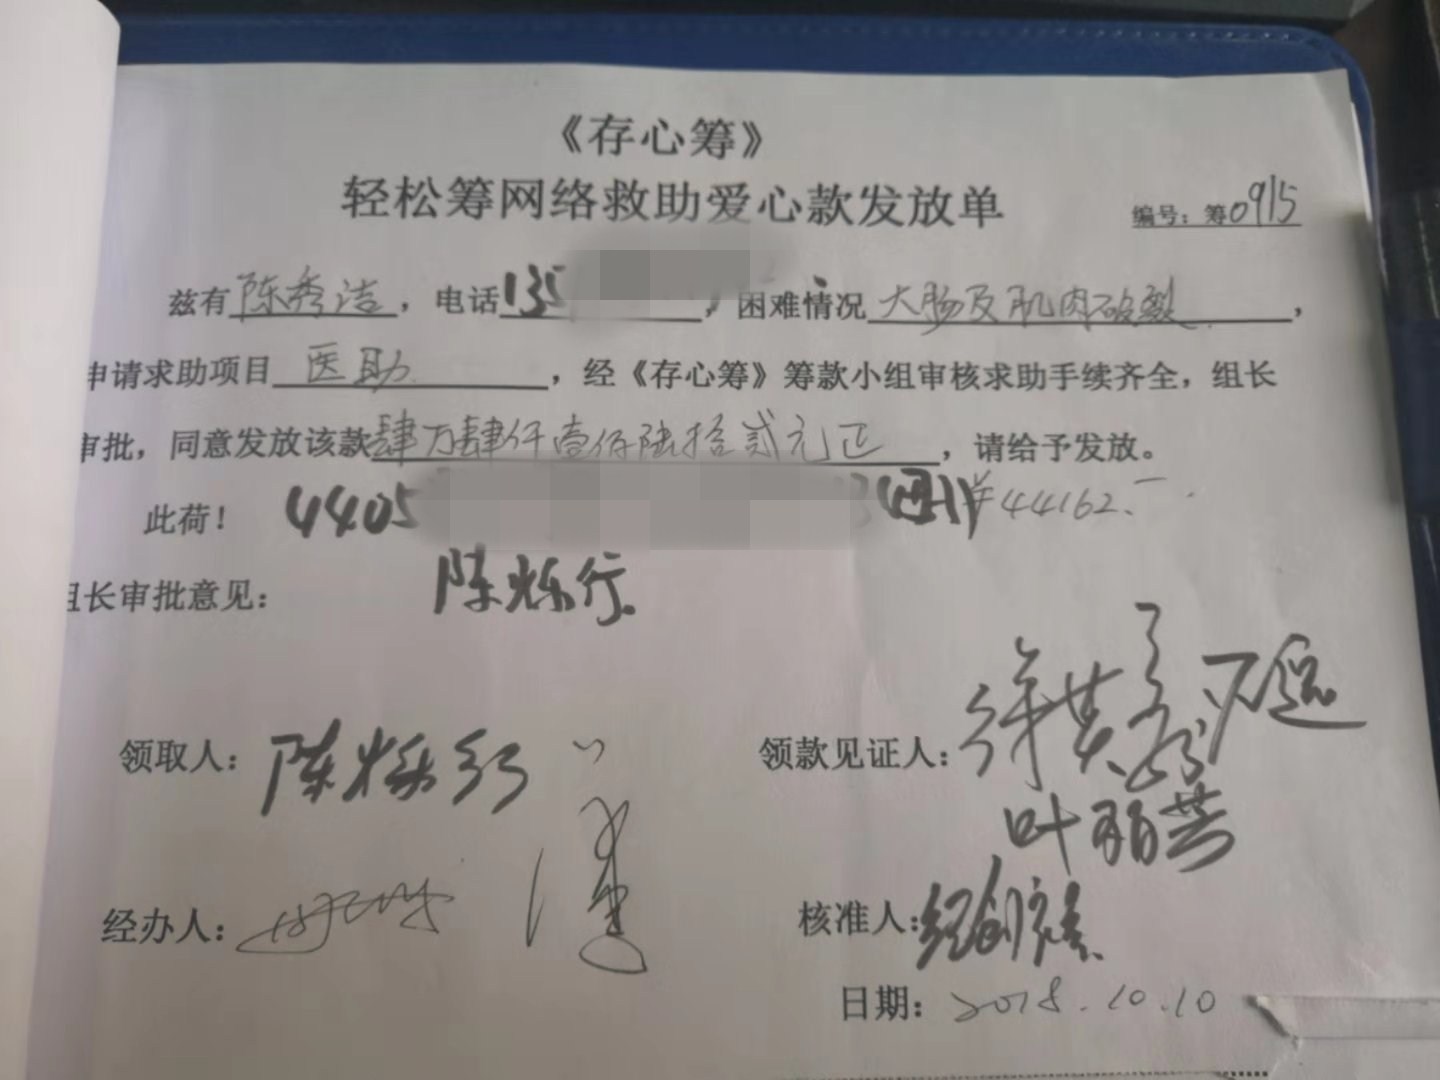 《存心筹》
轻松筹网络救助爱心款发放单
编号：筹0915
兹有陈秀洁，电话135，困难情况大肠及肌肉破裂，
申请求助项目医助，经《存心筹》筹款小组审核求助手续齐全，组长
审批，同意发放该款肆万肆仟壹佰陆拾贰元正，请给予发放。
此荷！4405 ¥44162.一
组长审批意见：陈烁行
领取人：陈烁行
领款见证人：
叶丽芸
经办人：
核准人：
日期：2018.10.10